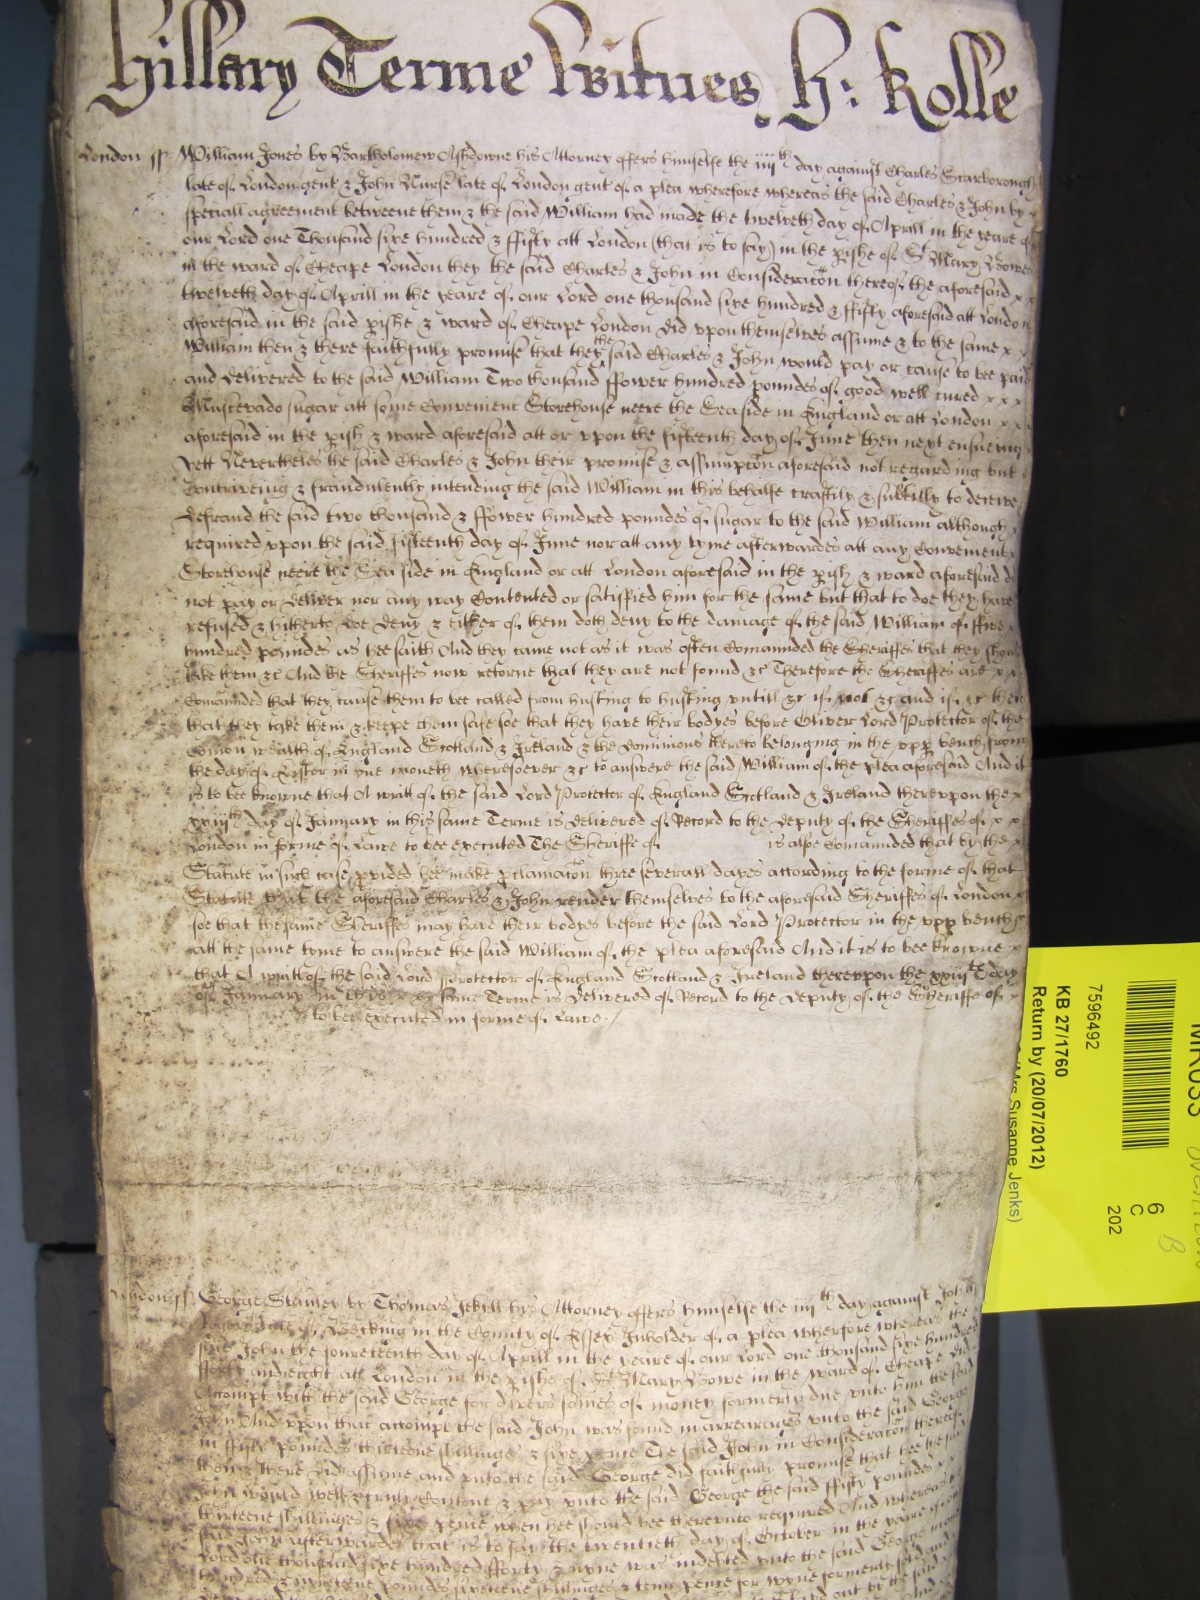 Hillary Terme Witnes H: Rolle
London ss William Jones by Bartholomew Ashdowne his Attorney offers himselfe the iiiith day against Charles Scarborough
late of London gent & John Nurse late of London gent of a plea wherefore whereas the said Charles & John by x
speciall agreement betweene them & the said William had made the twelveth day of Aprill in the yeare of
our Lord one Thousand sixe hundred & ffifty att London (that is to say) in the pishe of St Mary Bowe
in the ward of Cheape London they the said Charles & John in Consideracon thereof the aforesaid x x
twelveth day of Aprill in the yeare of our Lord one thousand sixe hundred & ffifty aforesaid att London
aforesaid in the said pishe & ward of Cheape London did vpon themselves assume & to the same x x
William then & there faithfully promise that they the said Charles & John would pay or cause to bee paid
and delivered to the said William Two thousand ffower hundred poundes of good well cured x x x
Muscevado sugar att some Convenient Storehouse neere the Sea side in England or att London x x
aforesaid in the pish & ward aforesaid att or vpon the fifteenth day of June then next ensueing
Yett Nevertheles the said Charles & John their promise & assumpcon aforesaid not regarding but
Contriveing & fraudulently intending the said William in this behalfe craftily & subtilly to deceive
defraud the said two thousand & ffower hundred poundes of sugar to the said William although
required vpon the said fifteenth day of June nor att any tyme afterwardes att any Convenient
Storehouse neere the Sea side in England or att London aforesaid in the pish & ward aforesaid did
not pay or deliver nor any way Contented or satisfied him for the same but that to doe they have
refused & hitherto doe deny & either of them doth deny to the damage of the said William of ffive
hundred poundes as hee saith And they came not as it was often Comaunded the Sheriffes that they should
take them &c And the Sheriffes now retorne that they are not found &c Therefore the Sheriffes are x x
Comaunded that they cause them to bee called from husting to husting vntill &c if not &c and if &c then
that they take them & keepe them safe soe that they have their bodyes before Oliver Lord Protector of the
Comon wealth of England Scotland & Ireland & the Dominions thereto belonging in the vpp bench from
the day of Easter in one moneth wheresoever &c to answere the said William of the plea aforesaid And it
is to bee knowne that A writt of the said Lord Protector of England Scotland & Ireland therevpon the x
xxiiith day of January in this same Terme is delivered of Record to the deputy of the Sheriffes of x x
London in forme of Lawe to bee executed The Sheriffe of is alsoe Comaunded that by the x
Statute in such case pvided hee make pclamacon three severall dayes according to the forme of that
Statute that the aforesaid Charles & John render themselves to the aforesaid Sheriffes of London x
soe that the same Sheriffes may have their bodyes before the said Lord Protector in the vpp bench
att the same tyme to answere the said William of the plea aforesaid And it is to bee knowne x
that A writt of the said Lord Protector of England Scotland & Ireland therevpon the xxiiith day
of January in this x x same Terme is delivered of Record to the deputy of the Sheriffe of x
to bee executed in forme of Lawe
London ss George Stanley by Thomas Jekyll his Attorney offers himselfe the iiiith day against John
late of Bocking in the County of Essex Inholder of a plea wherfore whereas the
said John the fourteenth day of Aprill in the yeare of our Lord one thousand sixe hundred
fforty and eight att London in the pishe of St Mary Bowe in the ward of Cheape did
Accompt with the said George for divers somes of money formerly due vnto him the said
John And vpon that accompt the said John was found in arrearages vnto the said George
in ffifty poundes thirteene shillinges & sixe pence The said John in Consideracon thereof
then & there did assume and vnto the said George did faithfully promise that hee the said
John would well & truly Content & pay vnto the said George the said ffifty poundes
thirteene shillinges & sixe pence when hee should bee therevnto required And whereas the
said John afterwardes that is to say the twentieth day of October in the yeare of our
Lord one thousand sixe hundred fforty & nyne was indebted vnto the said George in one
hundred & nyneteene poundes sixteene shillinges & tenn pence for wyne formerly sold and
7596492
KB 27/1760
Return by (20/07/2012)
(Mrs Susanne Jenks)
6
C
202